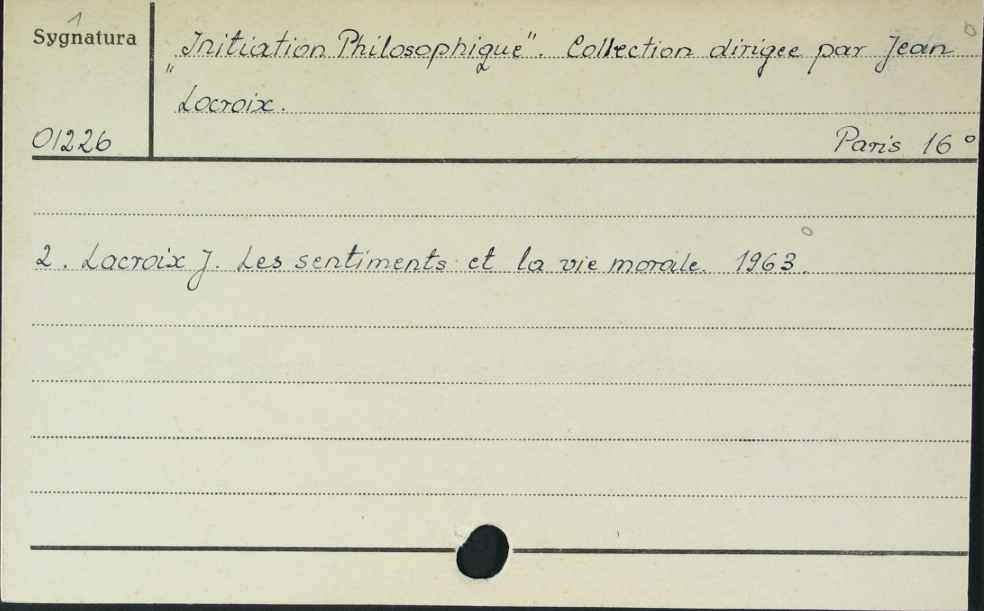 1
Sygnatura
„Initiation Philosophique". Collection dirigee par Jean
Lacroix.
01226
Paris 16°
2. Lacroix J. Les sentiments et la vie morale. 1963.